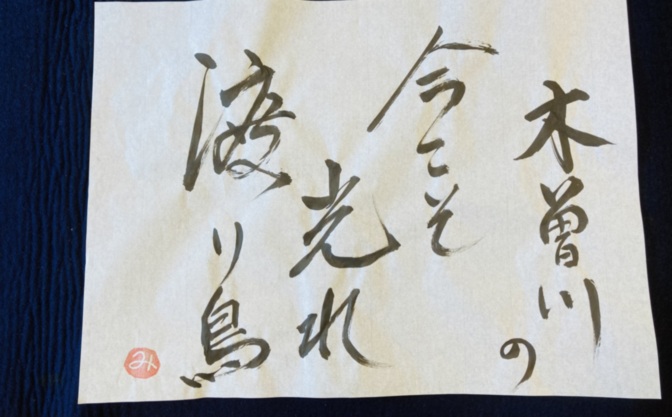 木曽川の
今こそ
光れ
渡り鳥
み